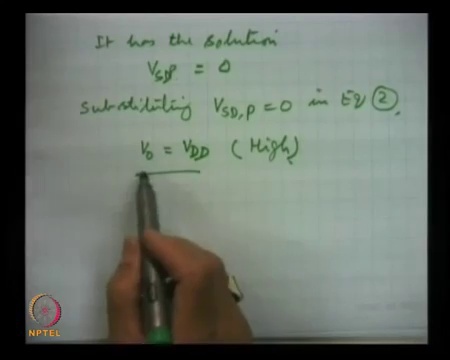 It has the solution
V_SDP = 0
substituting V_SD,P = 0 in Eq ②,
V_O = V_DD (High)
NPTEL